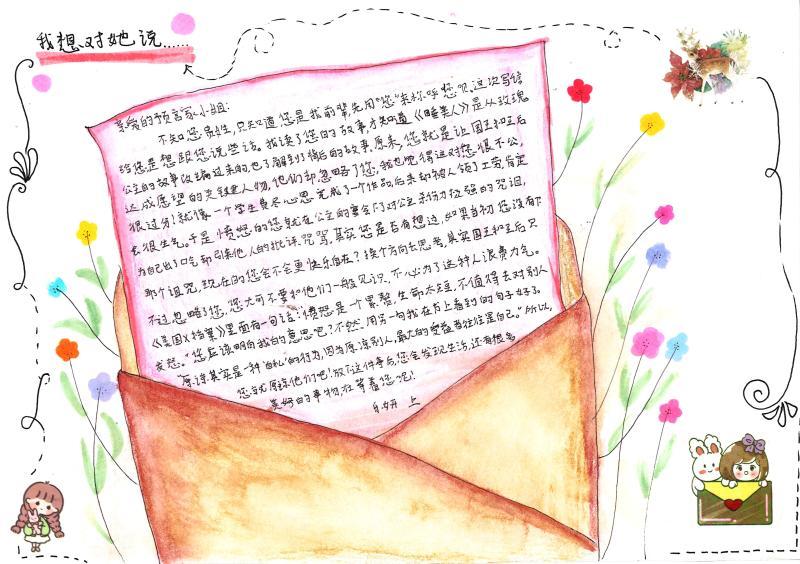 我想对她说......
亲爱的预言家小姐：
不知您贵姓，只知道您是我前辈，先用“您”来称呼您吧。这次写信
给您是想跟您说些话。我读了您的故事，才知道《睡美人》是从玫瑰
公主的故事改编过来的，也了解到了背后的故事。原来，您就是让国王和王后
达成愿望的关键人物，他们却忽略了您，我也觉得这对您很不公，
很过分！就像一个学生费尽心思完成了一个作品后来却被人领了功劳，肯定
会很生气。于是愤怒的您就在公主的宴会门对公主来份力极强的咒诅，
为自己出了口气却引来他人的批评、咒骂，其实您是否有想过，如果当初您没有下
那个诅咒，现在的您会不会更快乐自在？换个方向去思考，其实国王和王后只
不过忽略了您，您大可不要和他们一般见识，不必为了这种人浪费力气。
《美国X档案》里面有一句话：“愤怒是个累赘，生命太短，不值得去对别人
发怒。”您应该明白我的意思吧？不然，用另一句我在书上看到的句子好了。
“原谅其实是一种‘自私’的行为，因为原谅别人，最大的受益者往往是自己。”所以，
您就原谅他们吧！放下这件事后，您会发现生活，还有很多
美好的事物在等着您呢！
妍 上